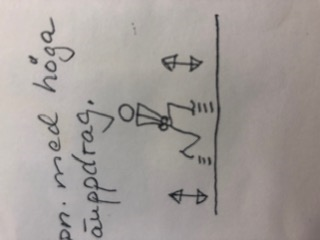 pn. med höga
äuppdrag.